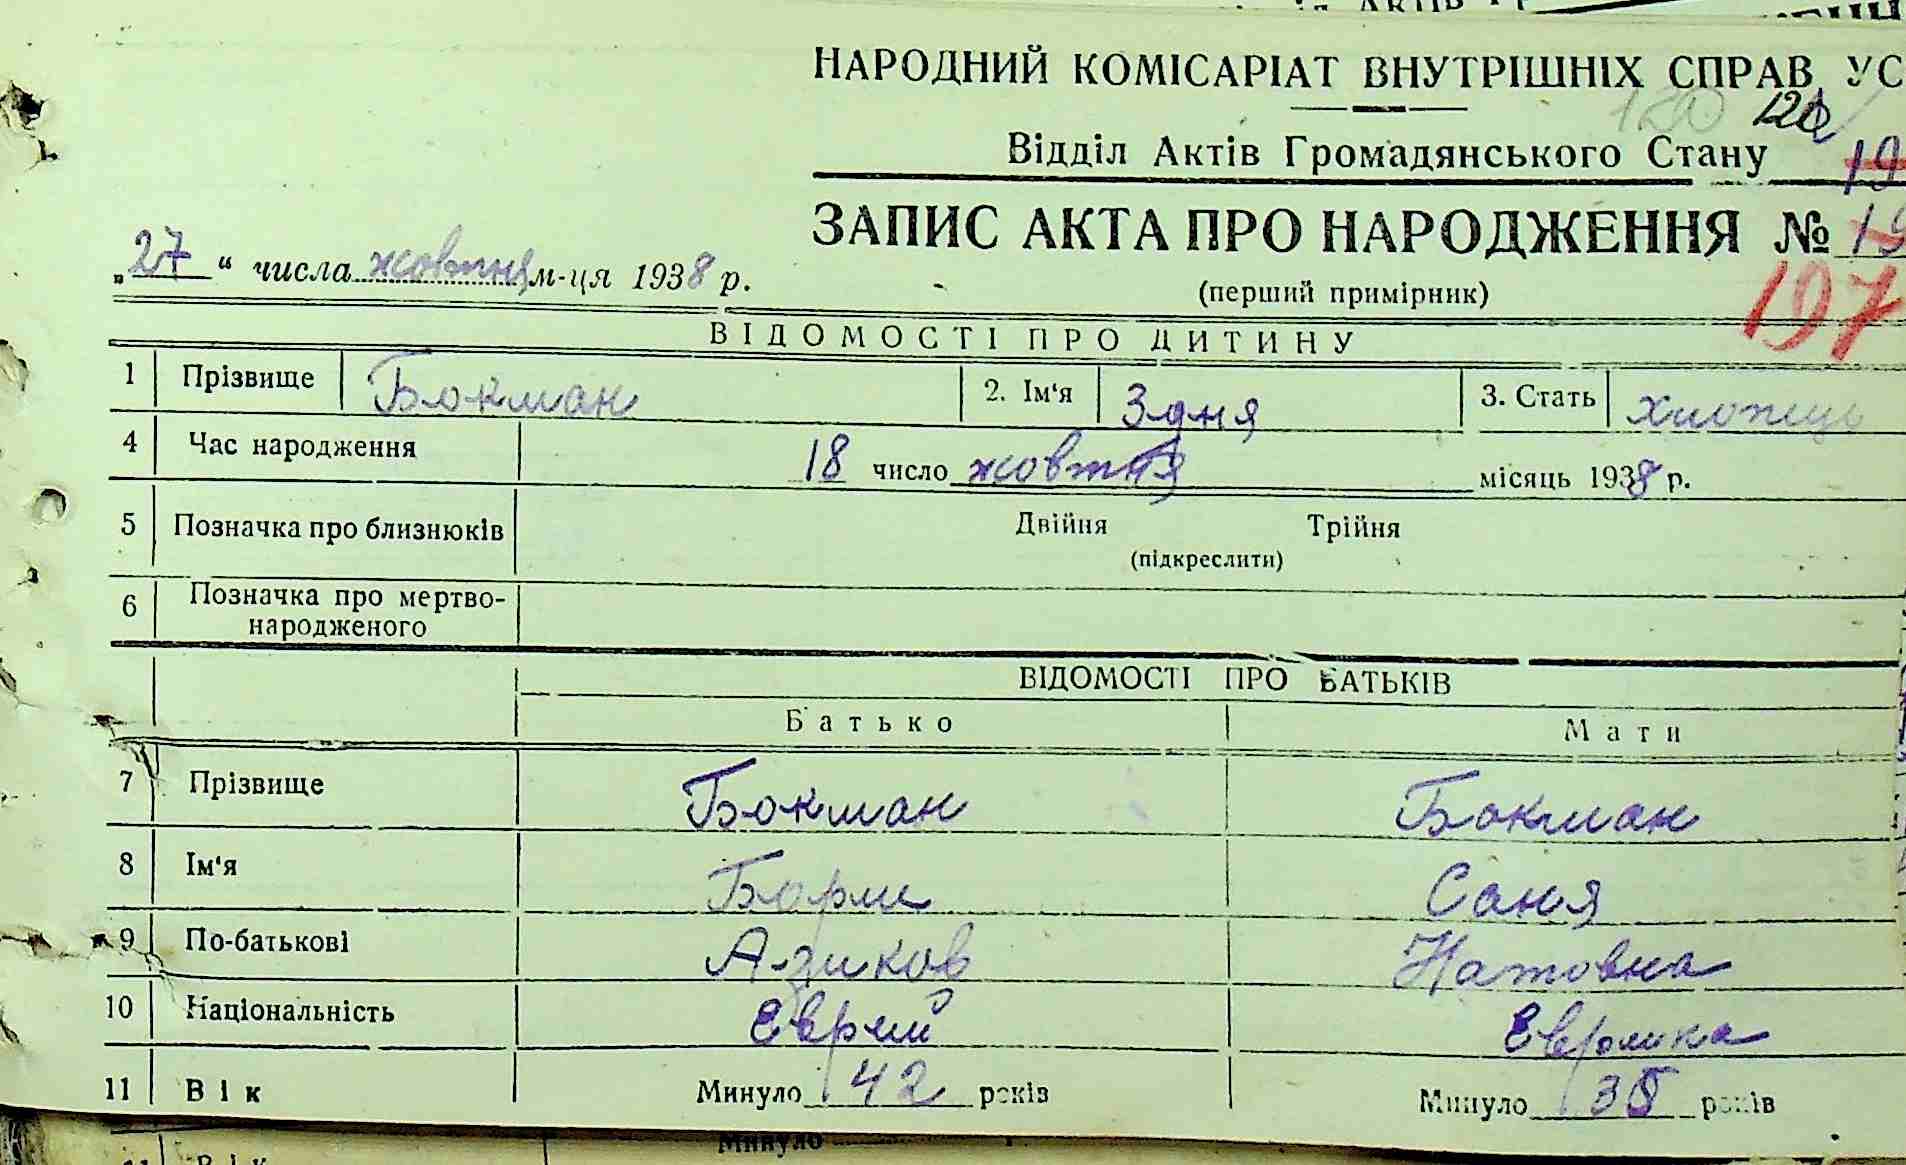 НАРОДНИЙ КОМІСАРІАТ ВНУТРІШНІХ СПРАВ УС
120 120
Відділ Актів Громадянського Стану 19
ЗАПИС АКТА ПРО НАРОДЖЕННЯ № 19
„27“ числа жовтня м-ця 1938 р.
(перший примірник)
197
ВІДОМОСТІ ПРО ДИТИНУ
1 Прізвище Бокман 2. Ім'я Здня 3. Стать хлопець
4 Час народження 18 число жовтня місяць 1938 р.
5 Позначка про близнюків Двійня Трійня
(підкреслити)
6 Позначка про мертво-
народженого
ВІДОМОСТІ ПРО БАТЬКІВ
Батько Мати
7 Прізвище Бокман Бокман
8 Ім'я Соня
9 По-батькові Натовна
10 Національність Єврей Єврейка
11 Вік Минуло 42 років Минуло 35 років
Минуло
11 Вік